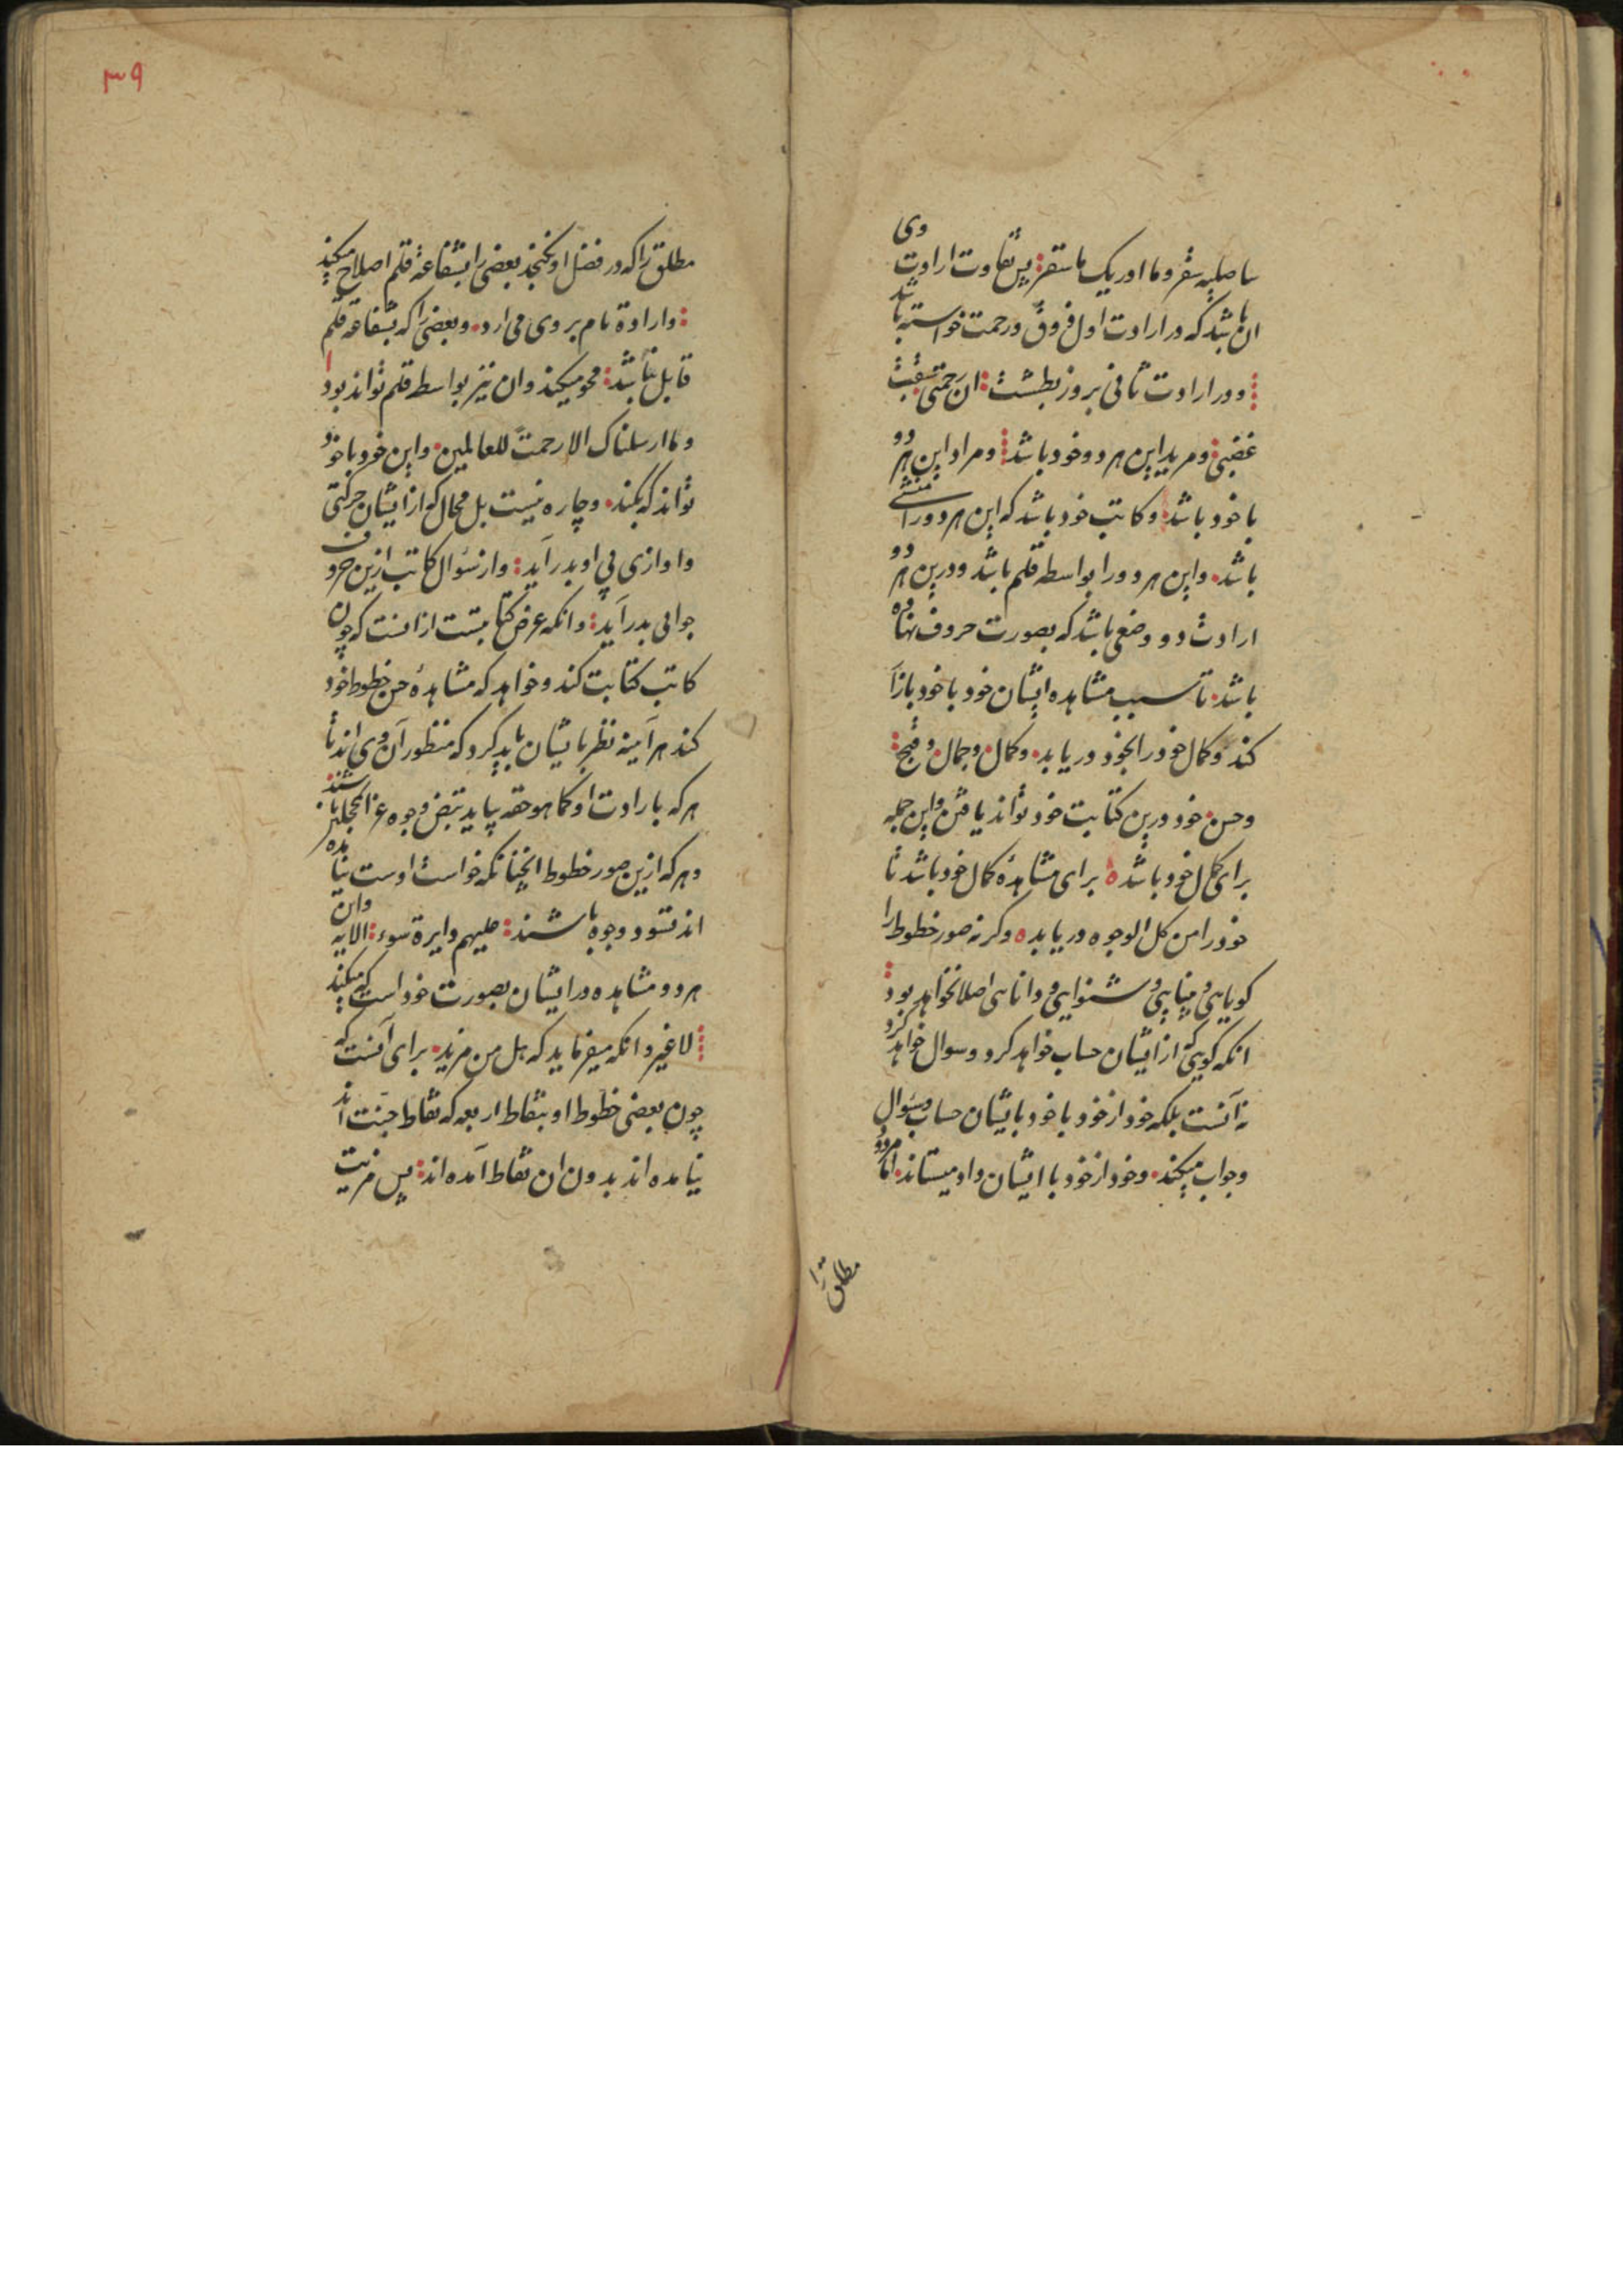 ساصلیه سقر وما ادریک ما سقر پس تفاوت ارادت وی
ان باشد که در ارادت اول فروق ورحمت خواسته باشد
ودر ارادت ثانی بروز بطشت ان رحمتی سبقت
غضبی ومرید این هر دو خود باشد ومراد این هر دو
با خود باشد وکاتب خود باشد که این هر دو را منشی
باشد واین هر دو را بواسطه قلم باشد ودرین هر دو
ارادت دو وضعی باشد که بصورت حروف نهاده
باشد تا بسبب مشاهده ایشان خود با خود بازآ
کند وکمال خود را بخود دریابد وکمال وجمال وقبح
وحسن خود درین کتابت خود تواند یافتن واین جمله
برای کمال خود باشد برای مشاهدهٔ کمال خود باشد تا
خود را من کل الوجوه دریابد وکرنه صور خطوط را
کویایی وبینایی وشنوایی ودانایی اصلا نخواهد بود
انکه کویی که از ایشان حساب خواهد کرد وسوال خواهد کرد
نه آنست بلکه خود از خود با خود با یشان حساب وسؤال
وجواب میکند وخود از خود با ایشان داد میستاند اما مردود
مطلق را
۳۹
مطلق را که در فضل او نکنجد بعضی را بشفاعة قلم اصلاح میکند
وارادة نام بر وی می ارد وبعضی را که بشفاعه قلم
قابل نباشد محو میکند وان نیز بواسطه قلم تواند بود
وما ارسلناک الا رحمت للعالمین واین خود با خود
تواند که بکند وچاره نیست بل محال که از ایشان حرکتی
واوازی بی او بدر آید واز سؤال کاتب ازین حروف
جوابی بدر آید وانکه عرض کتابتست از انست که چون
کاتب کتابت کند وخواهد که مشاهدهٔ حسن خطوط خود
کند هر آینه نظر بایشان باید کرد که منظور آن وی اند تا
هرکه بارادت او کما هو حقه بیاید تبیض وجوه غر المحجلین باشند
وهرکه ازین صور خطوط انچنانکه خواست اوست نیامده
اند تسود وجوه باشند علیهم دایرة سوء الایه وان
هر دو مشاهده در ایشان بصورت خود است که میکند
لاغیر وانکه میفرماید که هل من مزید برای آنست که
چون بعضی خطوط او بنقاط اربعه که نقاط جنت اند
نیامده اند بدون ان نقاط آمده اند پس مزیت